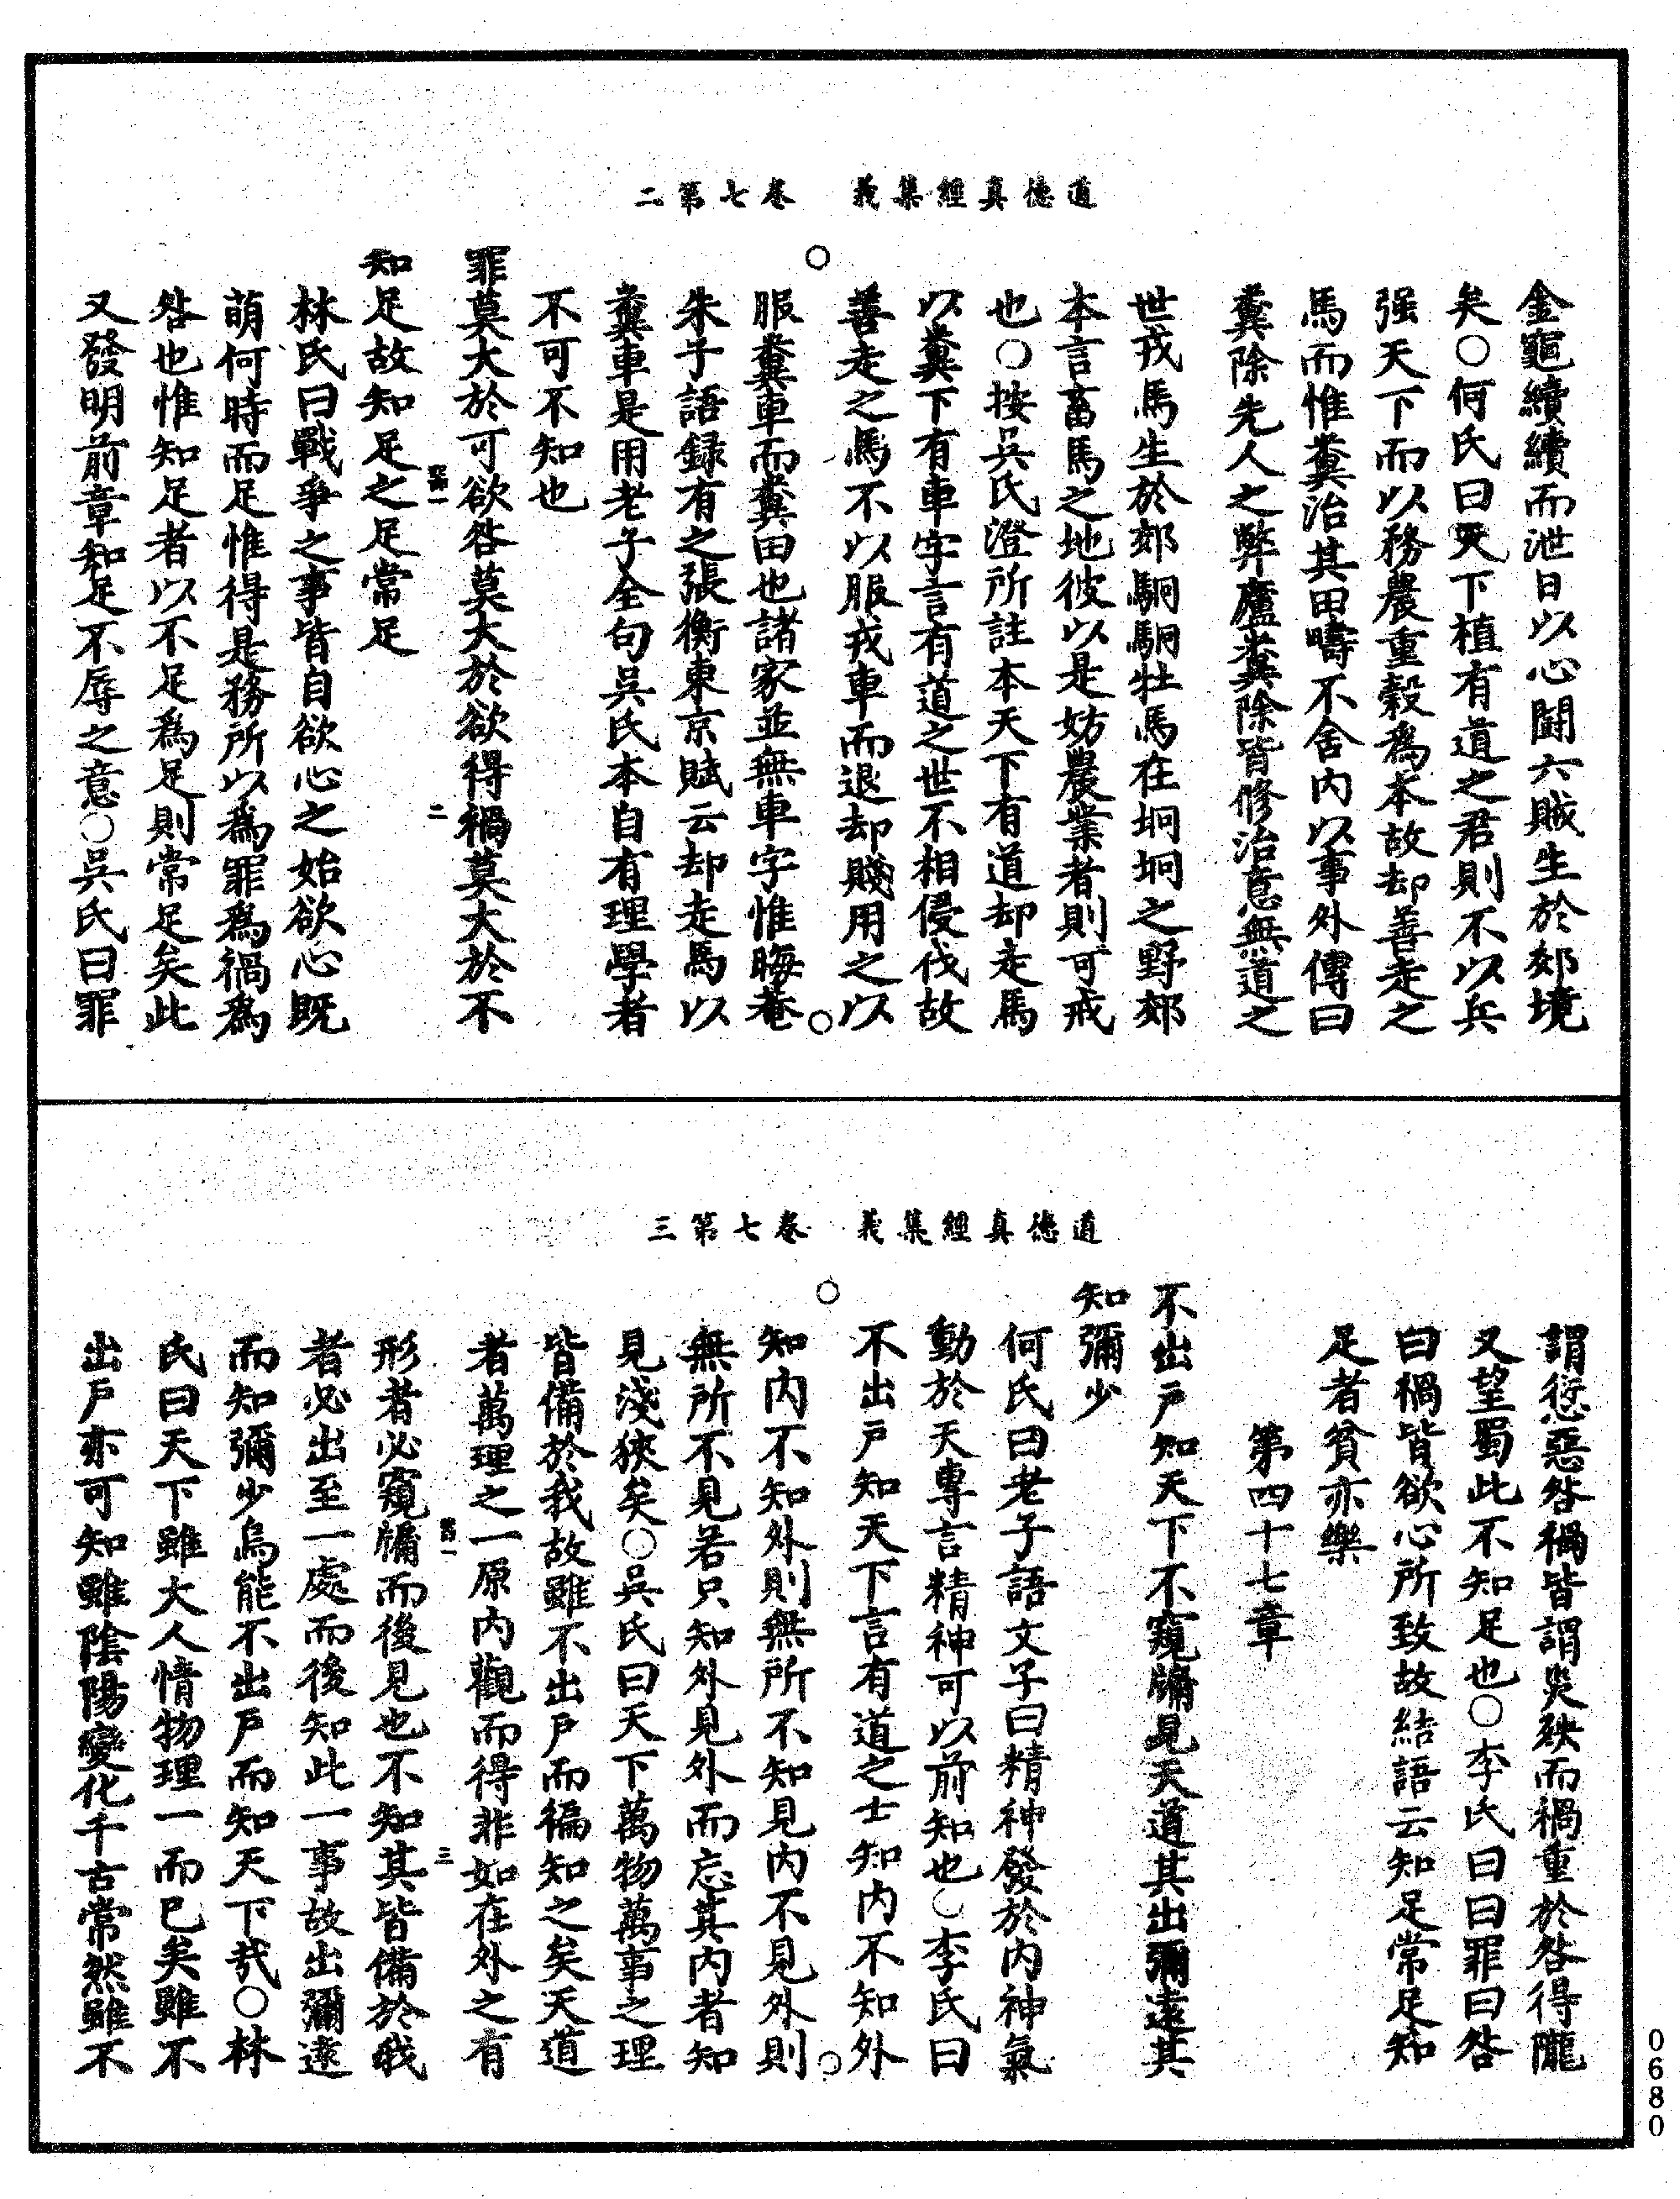 道德真經集義　卷七第二
金䮄續續而泄日以心鬪六賊生於郊境
矣○何氏曰天下植有道之君則不以兵
强天下而以務農重穀爲本故却善走之
馬而惟糞治其田疇不舍内以事外傳曰
糞除先人之弊廬糞除皆修治意無道之
世戎馬生於郊駉駉牡馬在坰坰之野郊
本言畜馬之地彼以是妨農業者則可戒
也○按吳氏澄所註本天下有道却走馬
以糞下有車字言有道之世不相侵伐故
善走之馬不以服戎車而退却賤用之以
服糞車而糞田也諸家並無車字惟晦菴
朱子語録有之張衡東京賦云却走馬以
糞車是用老子全句吳氏本自有理學者
不可不知也
罪莫大於可欲咎莫大於欲得禍莫大於不
知足故知足之足常足
林氏曰戰爭之事皆自欲心之始欲心既
萌何時而足惟得是務所以爲罪爲禍爲
咎也惟知足者以不足爲足則常足矣此
又發明前章知足不辱之意○吳氏曰罪
二
道德真經集義　卷七第三
謂愆惡咎禍皆謂災殃而禍重於咎得隴
又望蜀此不知足也○李氏曰曰罪曰咎
曰禍皆欲心所致故結語云知足常足知
足者貧亦樂
第四十七章
不出戸知天下不窺牖見天道其出彌遠其
知彌少
何氏曰老子語文子曰精神發於内神氣
動於天專言精神可以前知也○李氏曰
不出戸知天下言有道之士知内不知外
知内不知外則無所不知見内不見外則
無所不見若只知外見外而忘其内者知
見淺狹矣○吳氏曰天下萬物萬事之理
皆備於我故雖不出戸而徧知之矣天道
者萬理之一原内觀而得非如在外之有
形者必窺牖而後見也不知其皆備於我
者必出至一處而後知此一事故出彌遠
而知彌少烏能不出戸而知天下哉○林
氏曰天下雖大人情物理一而已矣雖不
出戸亦可知雖陰陽變化千古常然雖不
三
0680